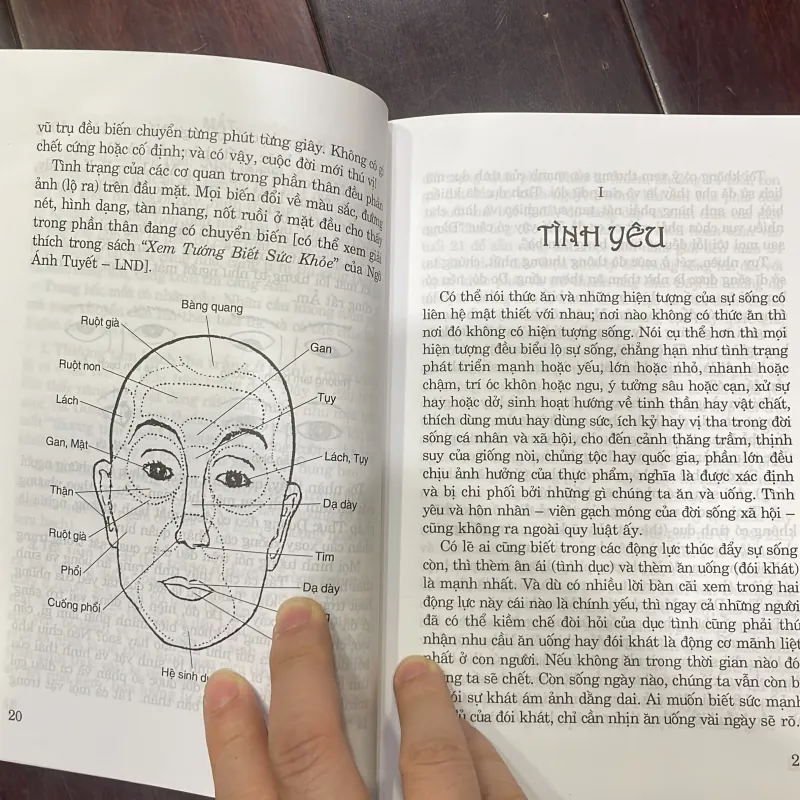 vũ trụ đều biến chuyển từng phút từng giây. Không có gì
chết cứng hoặc cố định; và có vậy, cuộc đời mới thú vị!
Tình trạng của các cơ quan trong phần thân đều phản
ảnh (lộ ra) trên đầu mặt. Mọi biến đổi về màu sắc, đường
nét, hình dạng, tàn nhang, nốt ruồi ở mặt đều cho thấy
trong phần thân đang có chuyển biến [có thể xem giải
thích trong sách “Xem Tướng Biết Sức Khỏe” của Ngô
Ánh Tuyết – LND].
Bàng quang
Ruột già
Gan
Ruột non
Tụy
Lách
Gan, Mật
Lách, Tụy
Thận
Dạ dày
Ruột già
Tim
Phổi
Dạ dày
Cuống phổi
Hệ sinh
20
I
TÌNH YÊU
Có thể nói thức ăn và những hiện tượng của sự sống có
liên hệ mật thiết với nhau; nơi nào không có thức ăn thì
nơi đó không có hiện tượng sống. Nói cụ thể hơn thì mọi
hiện tượng đều biểu lộ sự sống, chẳng hạn như tình trạng
phát triển mạnh hoặc yếu, lớn hoặc nhỏ, nhanh hoặc
chậm, trí óc khôn hoặc ngu, ý tưởng sâu hoặc cạn, xử sự
hay hoặc dở, sinh hoạt hướng về tinh thần hay vật chất,
thích dùng mưu hay dùng sức, ích kỷ hay vị tha trong đời
sống cá nhân và xã hội, cho đến cảnh thăng trầm, thịnh
suy của giống nòi, chủng tộc hay quốc gia, phần lớn đều
chịu ảnh hưởng của thực phẩm, nghĩa là được xác định
và bị chi phối bởi những gì chúng ta ăn và uống. Tình
yêu và hôn nhân – viên gạch móng của đời sống xã hội –
cũng không ra ngoài quy luật ấy.
Có lẽ ai cũng biết trong các động lực thúc đẩy sự sống
còn, thì thèm ân ái (tình dục) và thèm ăn uống (đói khát)
là mạnh nhất. Và dù có nhiều lời bàn cãi xem trong hai
động lực này cái nào là chính yếu, thì ngay cả những người
đã có thể kiềm chế đòi hỏi của dục tình cũng phải thú
nhận nhu cầu ăn uống hay đói khát là động cơ mãnh liệt
nhất ở con người. Nếu không ăn trong thời gian nào đó
ta sẽ chết. Còn sống ngày nào, chúng ta vẫn còn b
sự khát ám ảnh dằng dai. Ai muốn biết sức mạnh
của đói khát, chỉ cần nhịn ăn uống vài ngày sẽ rõ.
2